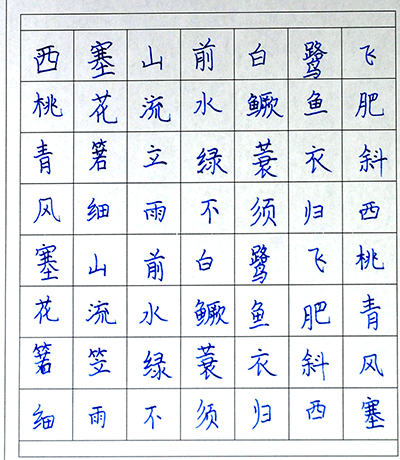 西塞山前白鹭飞
桃花流水鳜鱼肥
青箬立绿蓑衣斜
风细雨不须归西
塞山前白鹭飞桃
花流水鳜鱼肥青
箬笠绿蓑衣斜风
细雨不须归西塞